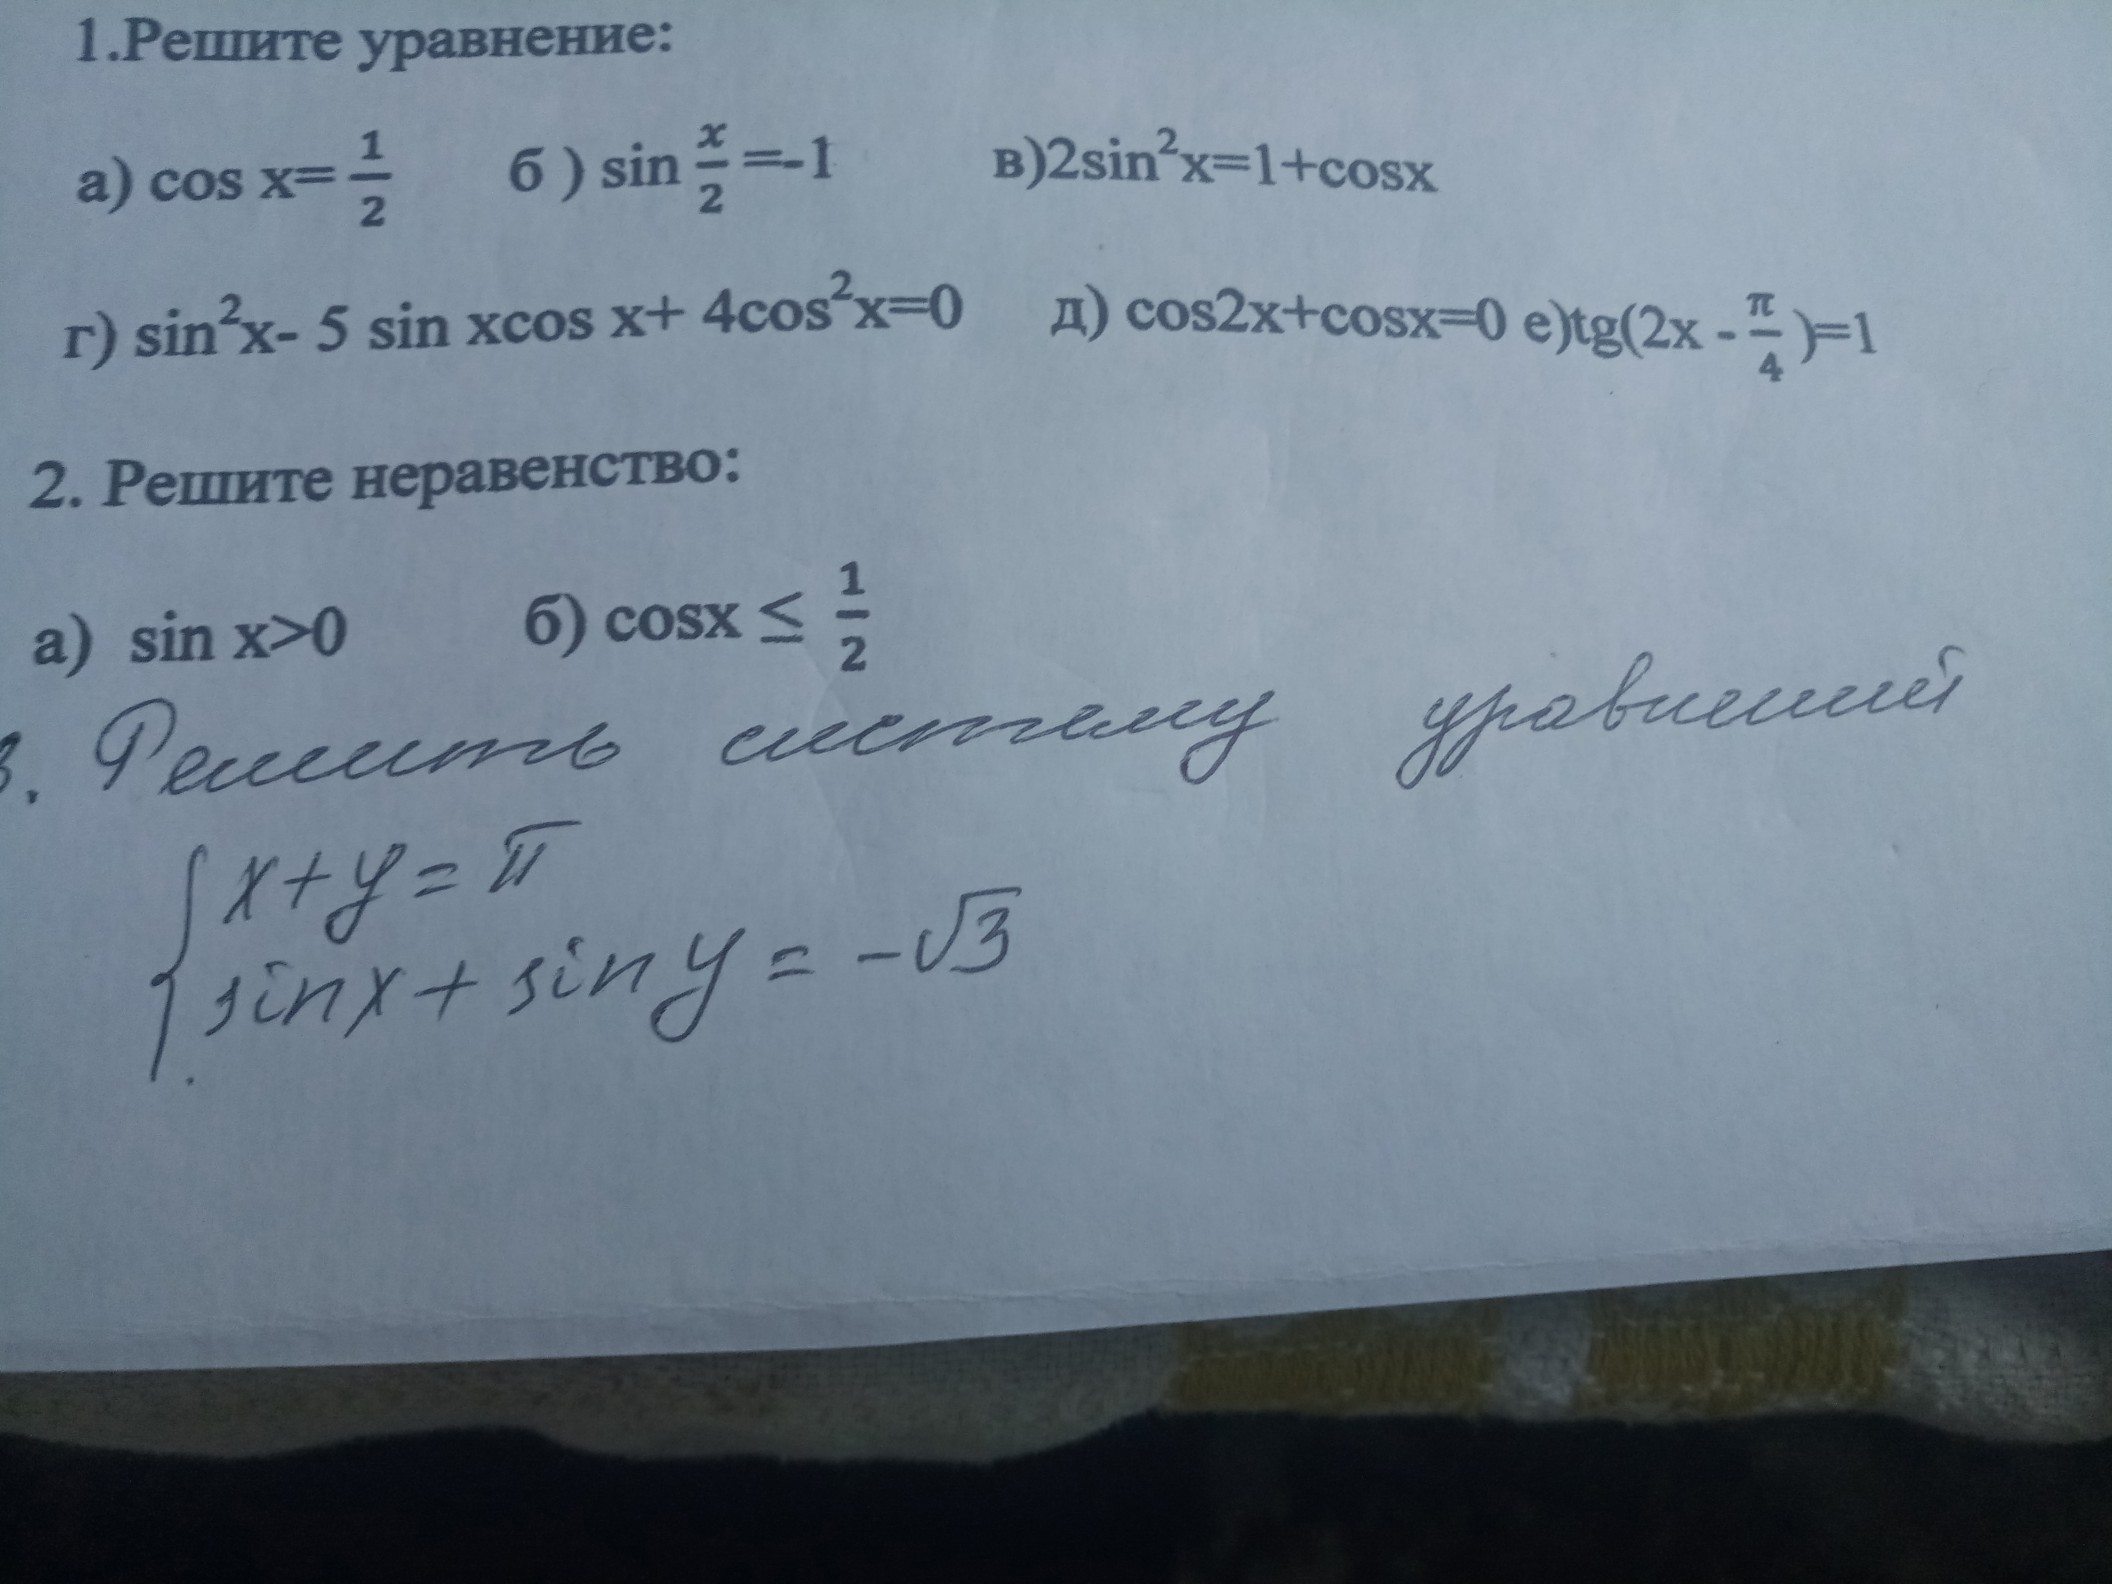 1.Решите уравнение:
а) cos x= 1/2 б ) sin x/2 =-1 в)2sin²x=1+cosx
г) sin²x- 5 sin xcos x+ 4cos²x=0 д) cos2x+cosx=0 е)tg(2x - π/4 )=1
2. Решите неравенство:
а) sin x>0 б) cosx ≤ 1/2
3. Решить систему уравнений
{ x+y= π
sinx + sin y = -√3